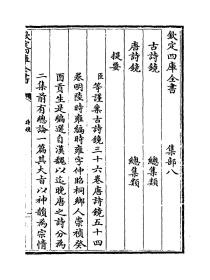 欽定四庫全書　集部八
古詩鏡　總集類
唐詩鏡　總集類
提要
臣等謹案古詩鏡三十六卷唐詩鏡五十四
卷明陸時雍編時雍字仲昭桐鄉人崇禎癸
酉貢生是編選自漢魏以迄晚唐之詩分為
二集前有總論一篇其大旨以神韻為宗情